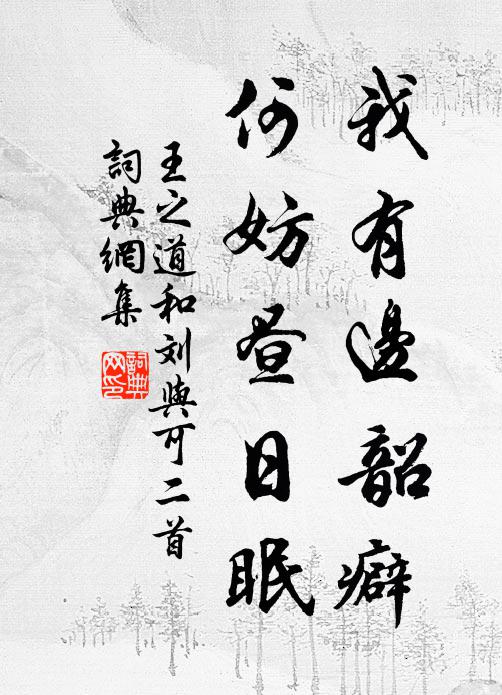 我有邊韶癖
何妨昼日眠
王之道和刘與可二首
詞典網集
詞典
网印